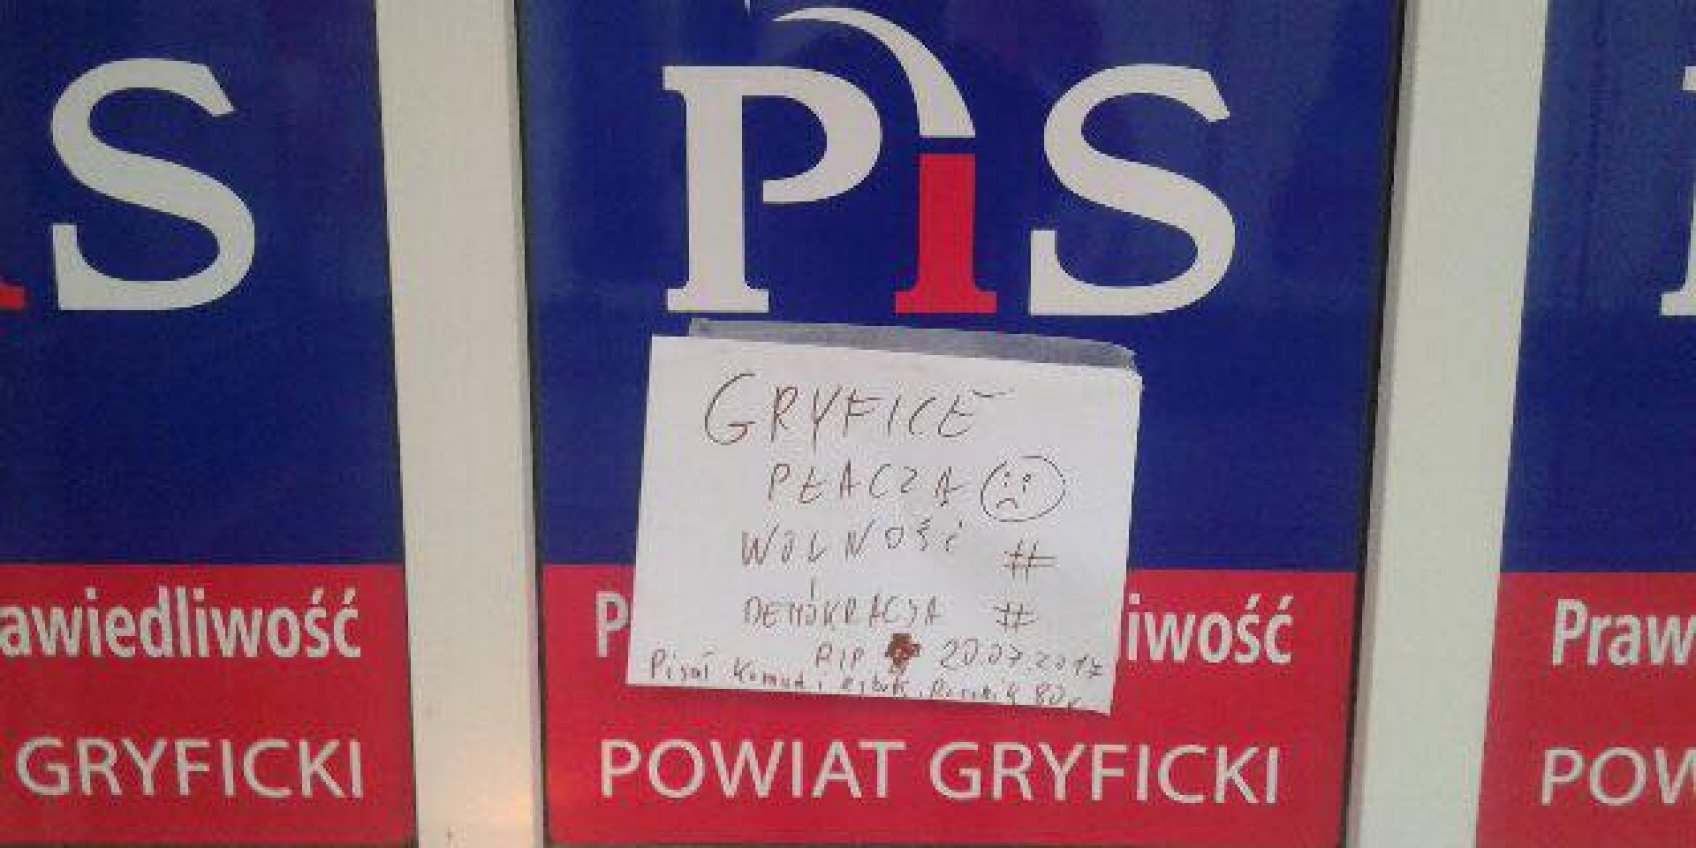 iS
awiedliwość
GRYFICKI
PiS
GRYFICE
PŁACZĄ
WOLNOŚĆ #
i
DEMOKRACJA #
RIP 20.07.2017
Pisał
P iwość
POWIAT GRYFICKI
Praw
POW